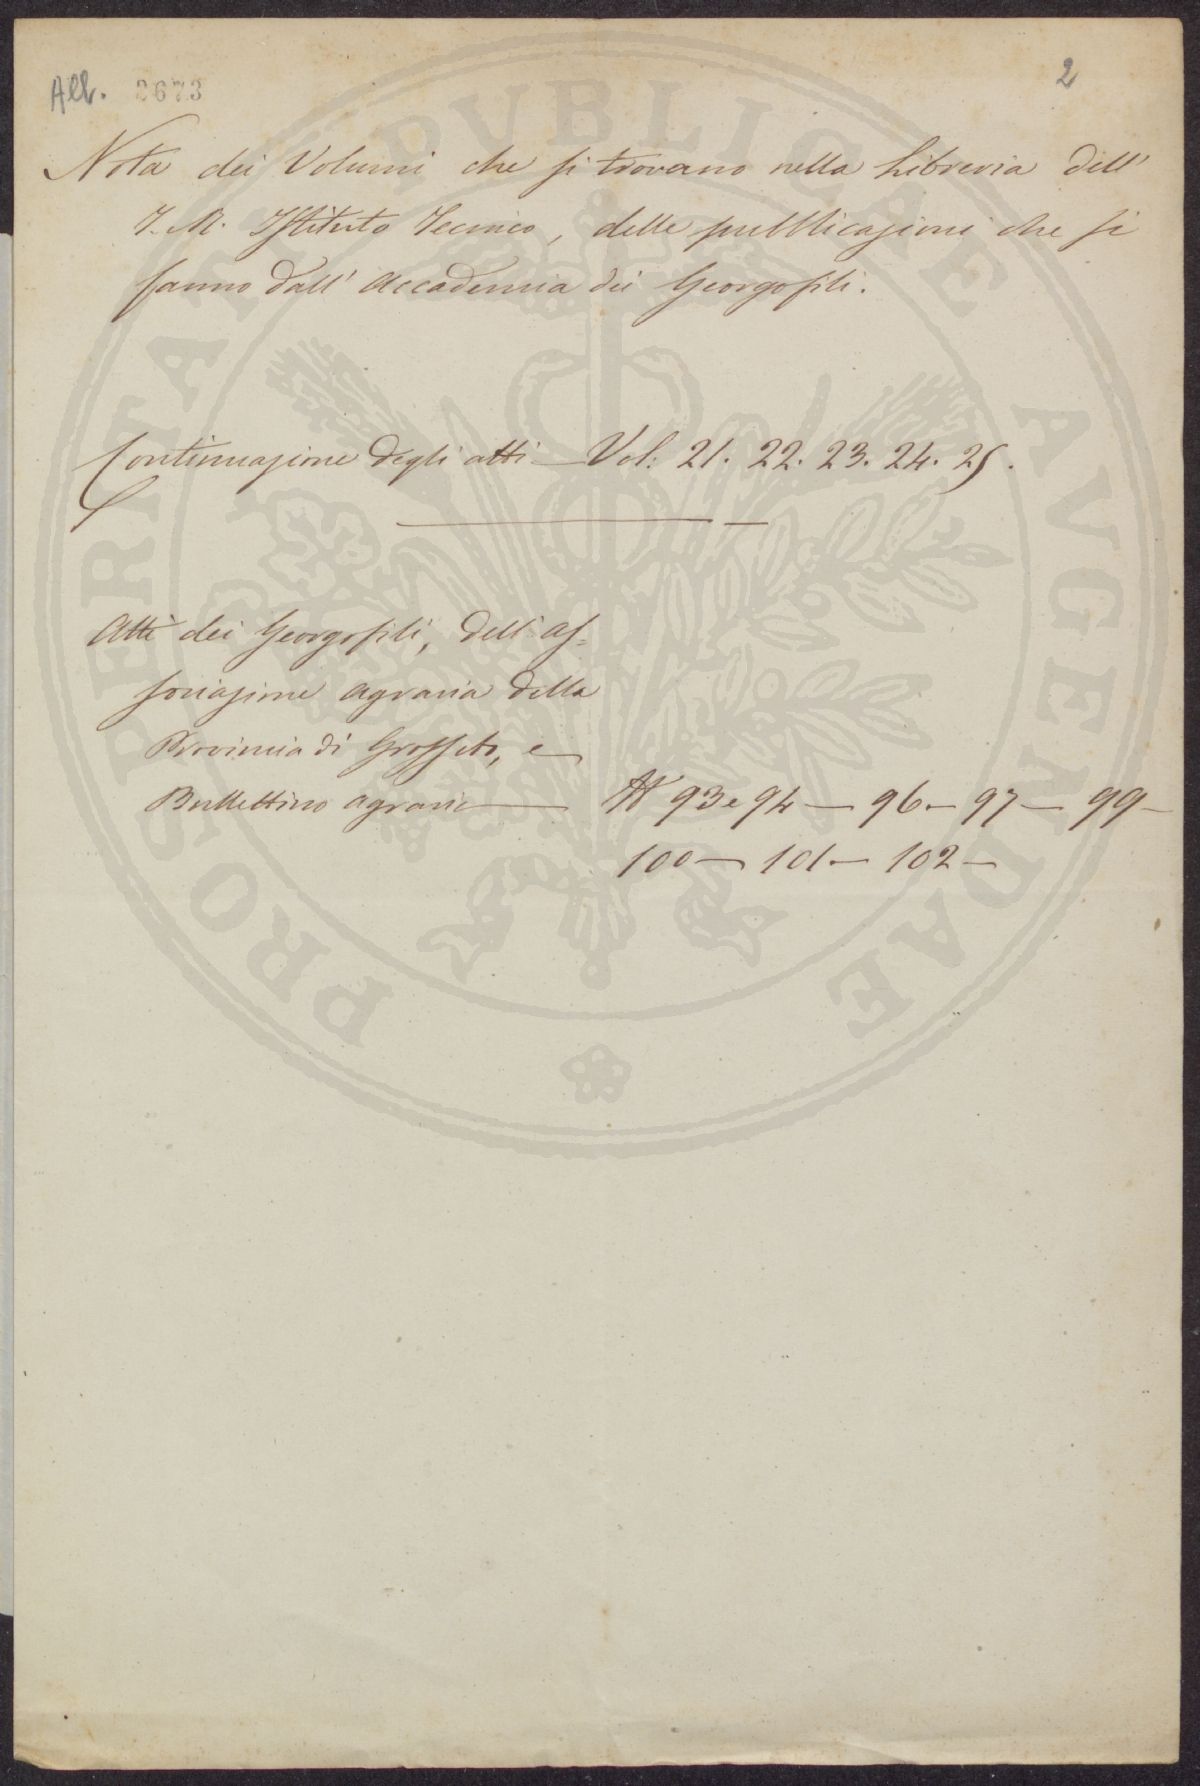 All. 2673
2
Nota dei Volumi che si trovano nella Libreria dell'
I. R. Istituto Tecnico, delle pubblicazioni che si
fanno dall' Accademia dei Georgofili.
Continuazione degli atti — Vol: 21. 22. 23. 24. 25.
Atti dei Georgofili, dell' as=
sociazione agraria della
Provincia di Grosseto, e
Bullettino agrario — N 93 e 94 — 96 — 97 — 99 —
100 — 101 — 102 —
PROSPERITATI PVBLICAE AVGENDAE